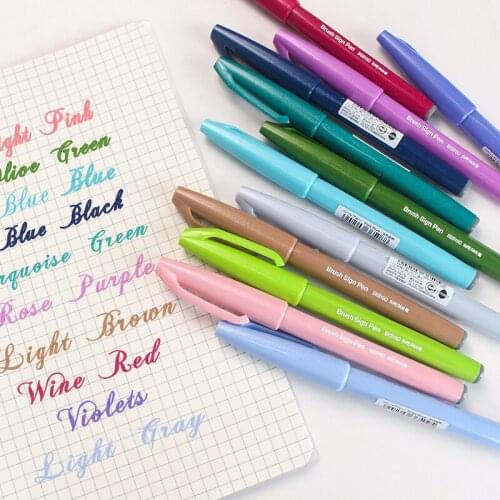 ight Pink
Olive Green
Blue Blue
Blue Black
urquoise Green
Rose Purple
Light Brown
Wine Red
Violets
Light Gray
Brush Sign Pen
Brush Sign Pen
Brush Sign Pen
Brush Sign Pen
Brush Sign Pen
Brush Sign Pen